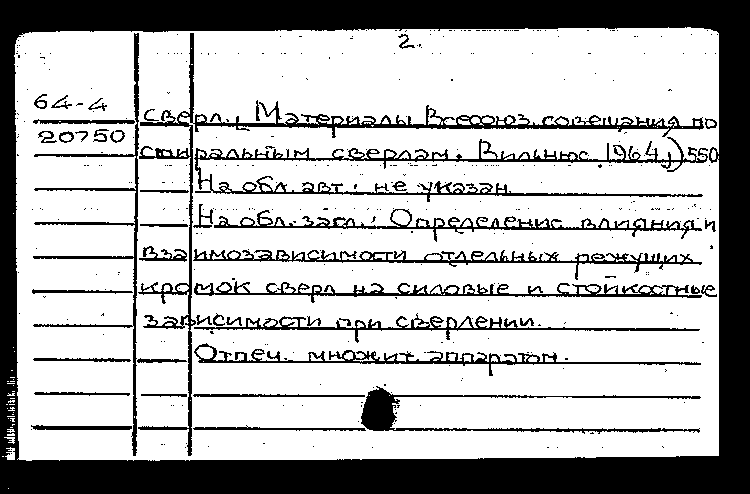 2.
64-4
сверл., Материалы Всесоюз. совещания по
20750
спиральным сверлам. Вильнюс 1964,) 550
На обл. авт.: не указан
На обл. загл.: Определение влияния и
взаимозависимости отдельных режущих
кромок сверл на силовые и стойкостные
зависимости при сверлении.
Отпеч. множит. аппаратом.